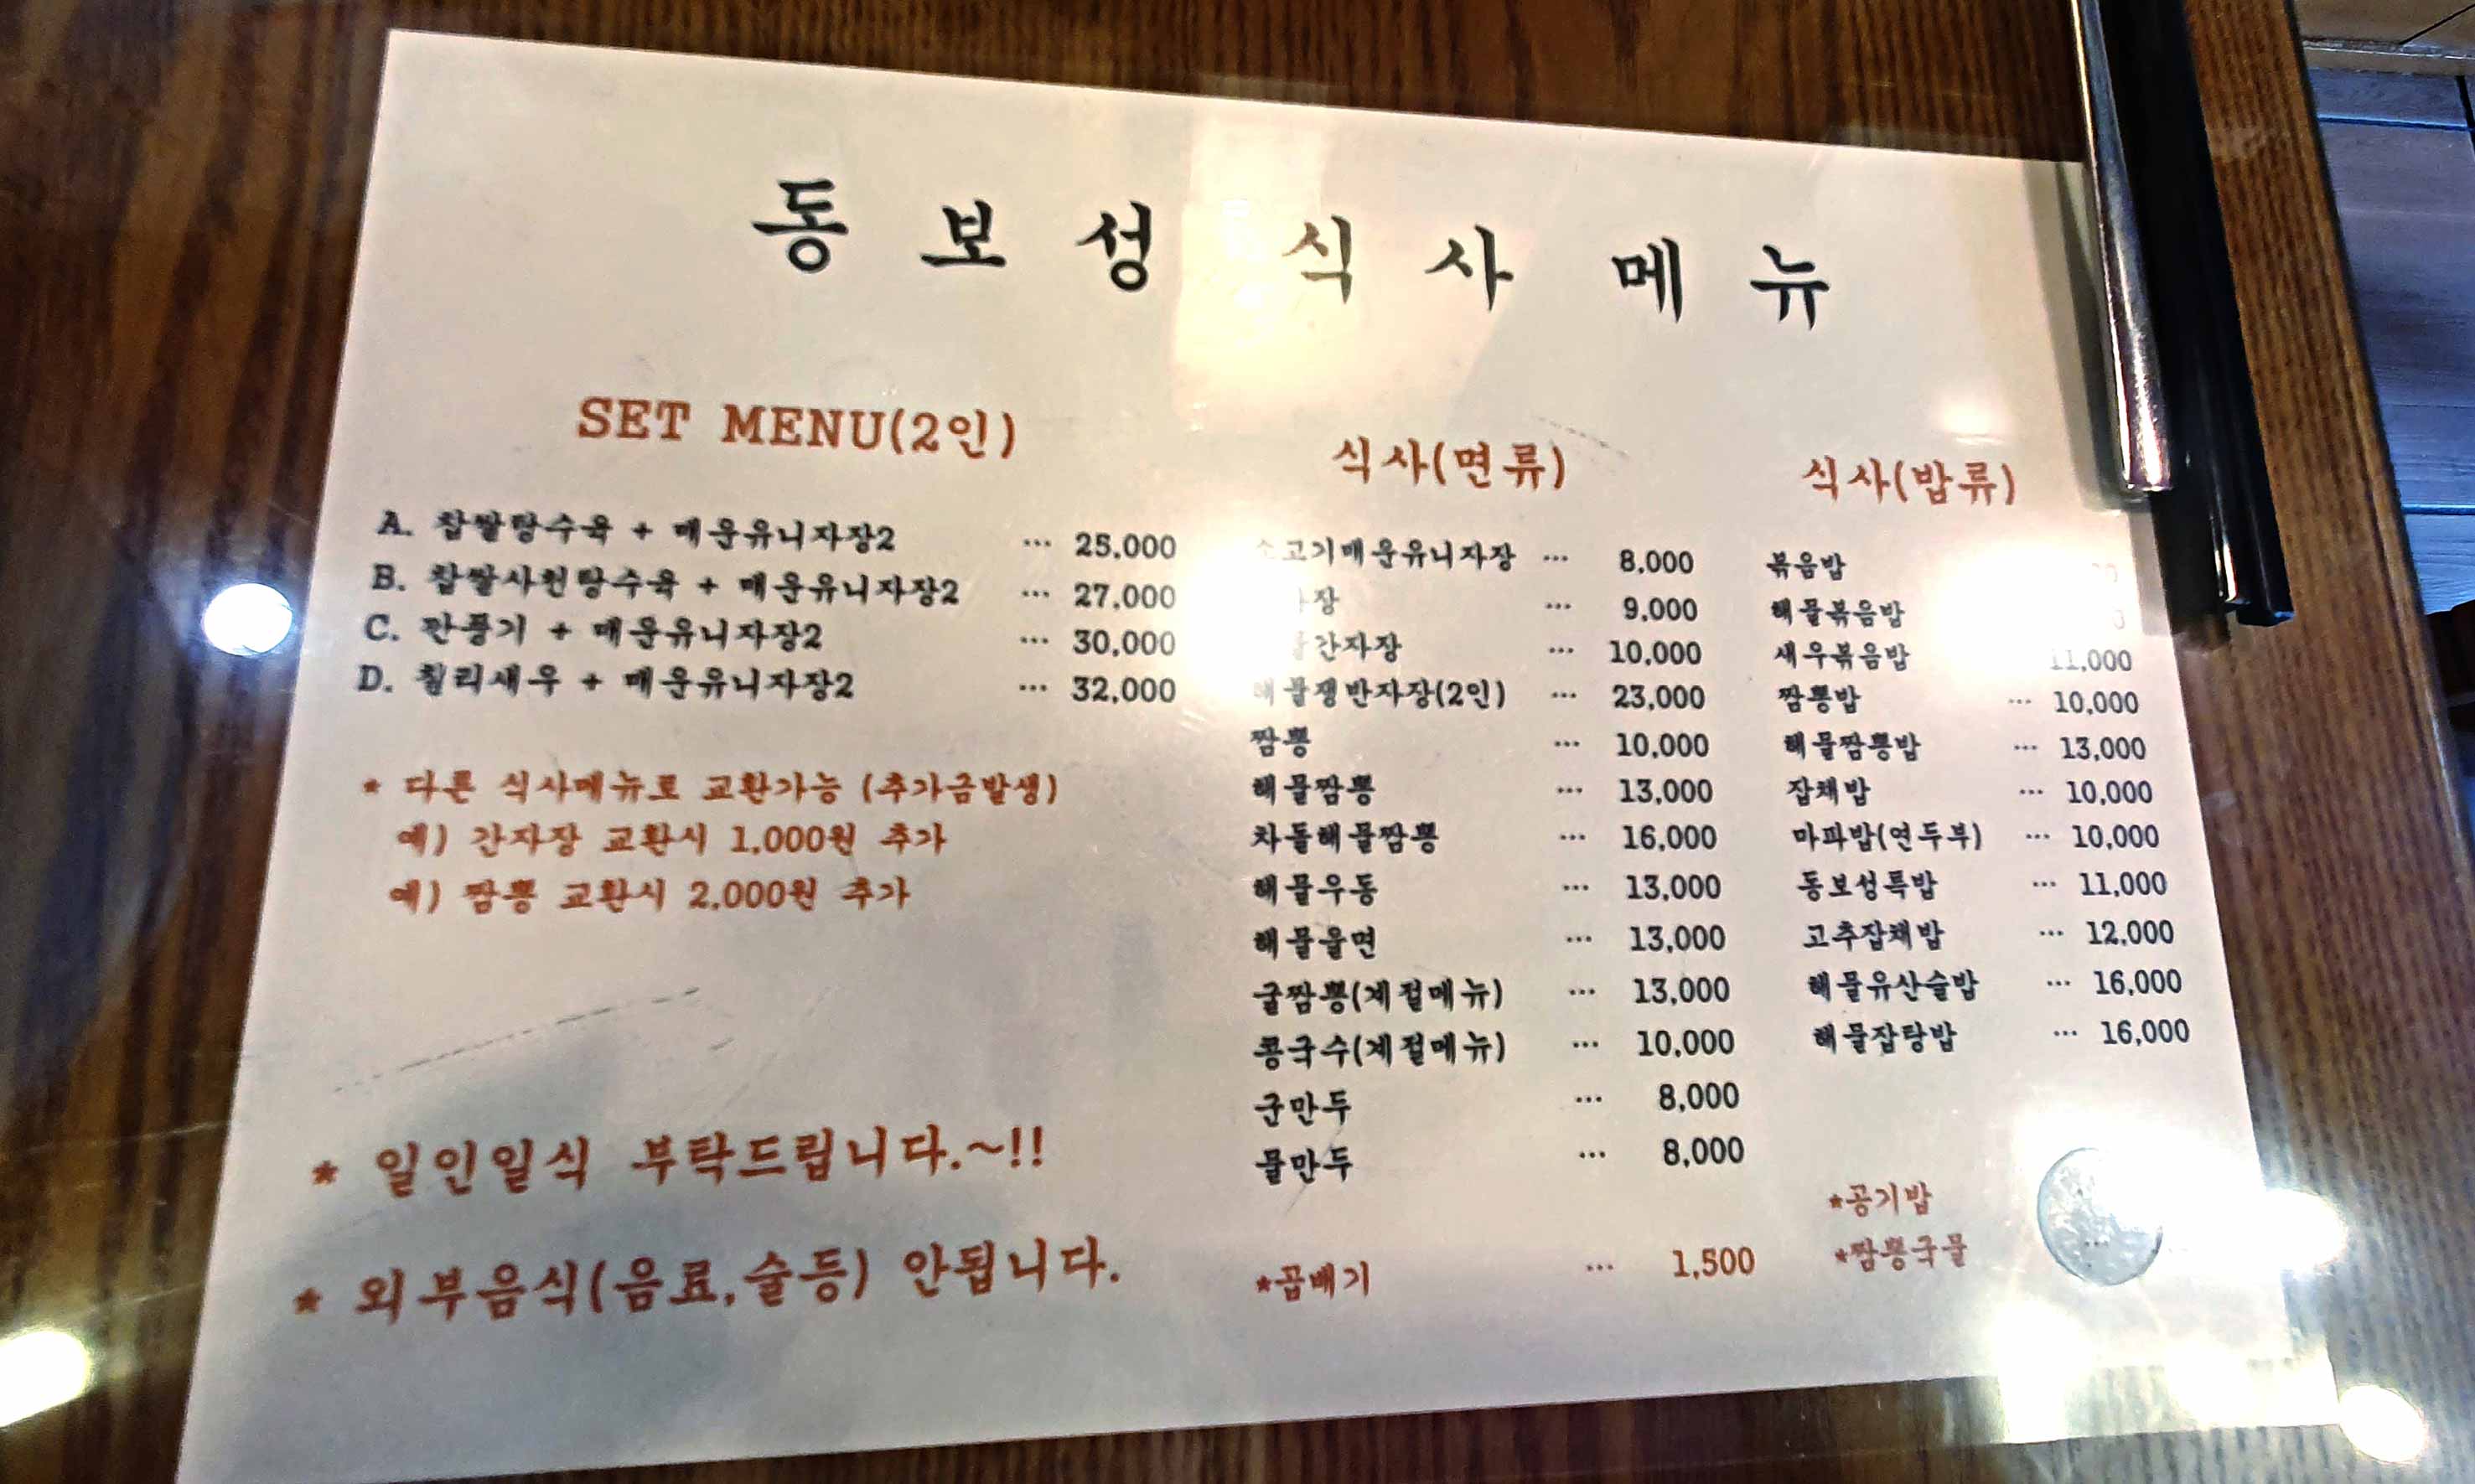 동보성 식사 메뉴
SET MENU(2인)
A. 찹쌀탕수육 + 매운유니자장2 ... 25,000
B. 찹쌀사천탕수육 + 매운유니자장2 ... 27,000
C. 깐풍기 + 매운유니자장2 ... 30,000
D. 칠리새우 + 매운유니자장2 ... 32,000
* 다른 식사메뉴로 교환가능 (추가금발생)
예) 간자장 교환시 1,000원 추가
예) 짬뽕 교환시 2,000원 추가
* 일인일식 부탁드립니다.~!!
* 외부음식(음료,술등) 안됩니다.
식사(면류)
소고기매운유니자장 ... 8,000
자장 ... 9,000
간자장 ... 10,000
해물쟁반자장(2인) ... 23,000
짬뽕 ... 10,000
해물짬뽕 ... 13,000
차돌해물짬뽕 ... 16,000
해물우동 ... 13,000
해물울면 ... 13,000
굴짬뽕(계절메뉴) ... 13,000
콩국수(계절메뉴) ... 10,000
군만두 ... 8,000
물만두 ... 8,000
*곱배기 ... 1,500
식사(밥류)
볶음밥
해물볶음밥
새우볶음밥 11,000
짬뽕밥 ... 10,000
해물짬뽕밥 ... 13,000
잡채밥 ... 10,000
마파밥(연두부) ... 10,000
동보성특밥 ... 11,000
고추잡채밥 ... 12,000
해물유산슬밥 ... 16,000
해물잡탕밥 ... 16,000
*공기밥
*짬뽕국물 ...